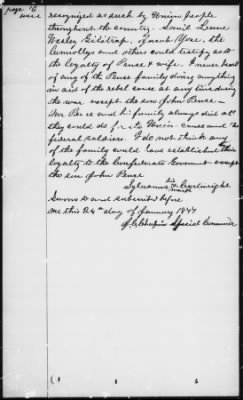 page 6
were recognized as such by Union people
throughout the country. Samil
Yost, the
Connollys and others could testify as to
the loyalty of Pence & wife. I never heard
of any of the Pence family doing anything
in aid of the rebel cause at any time during
the war except the son John Pence -
Mr Pence and his family always did all
they could do for the Union cause and the
federal soldiers. I do not think any
of the family could have established their
loyalty to the Confederate Government except
the son John Pence
Sylvanus his x mark Cartwright
Sworn to and subscribed before
me this 24th day of January 1877
Special Commr